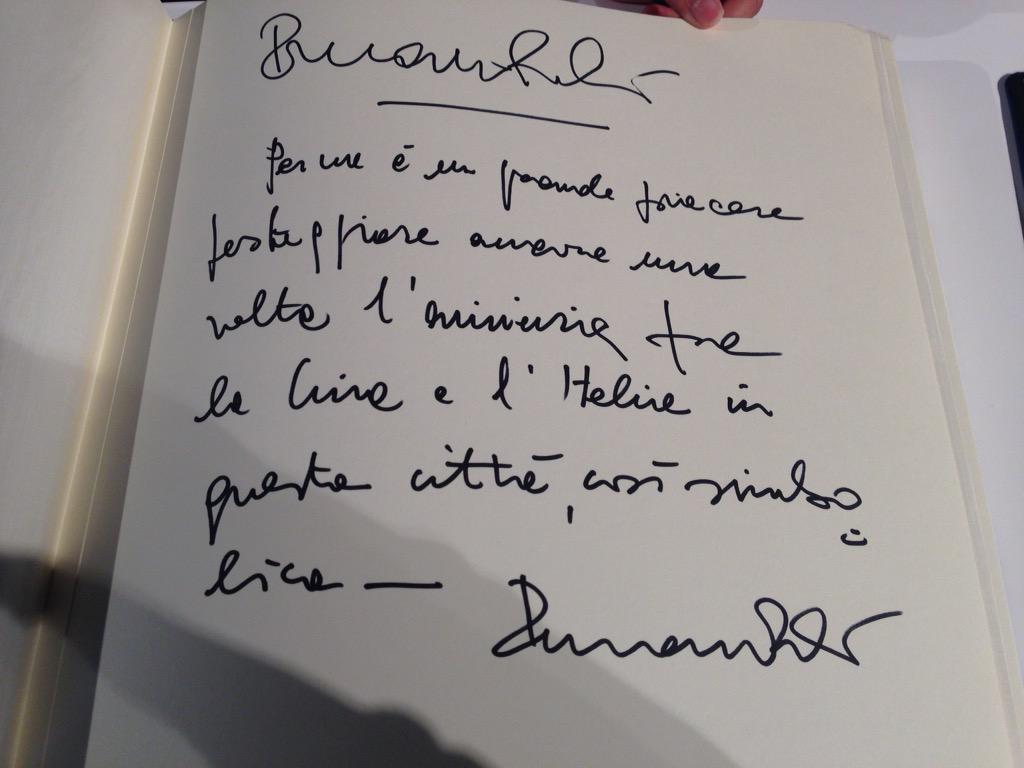 Per me è un grande piacere
festeggiare ancora una
volta l'amicizia fra
la Cina e l'Italia in
questa città, così simbo=
lica —